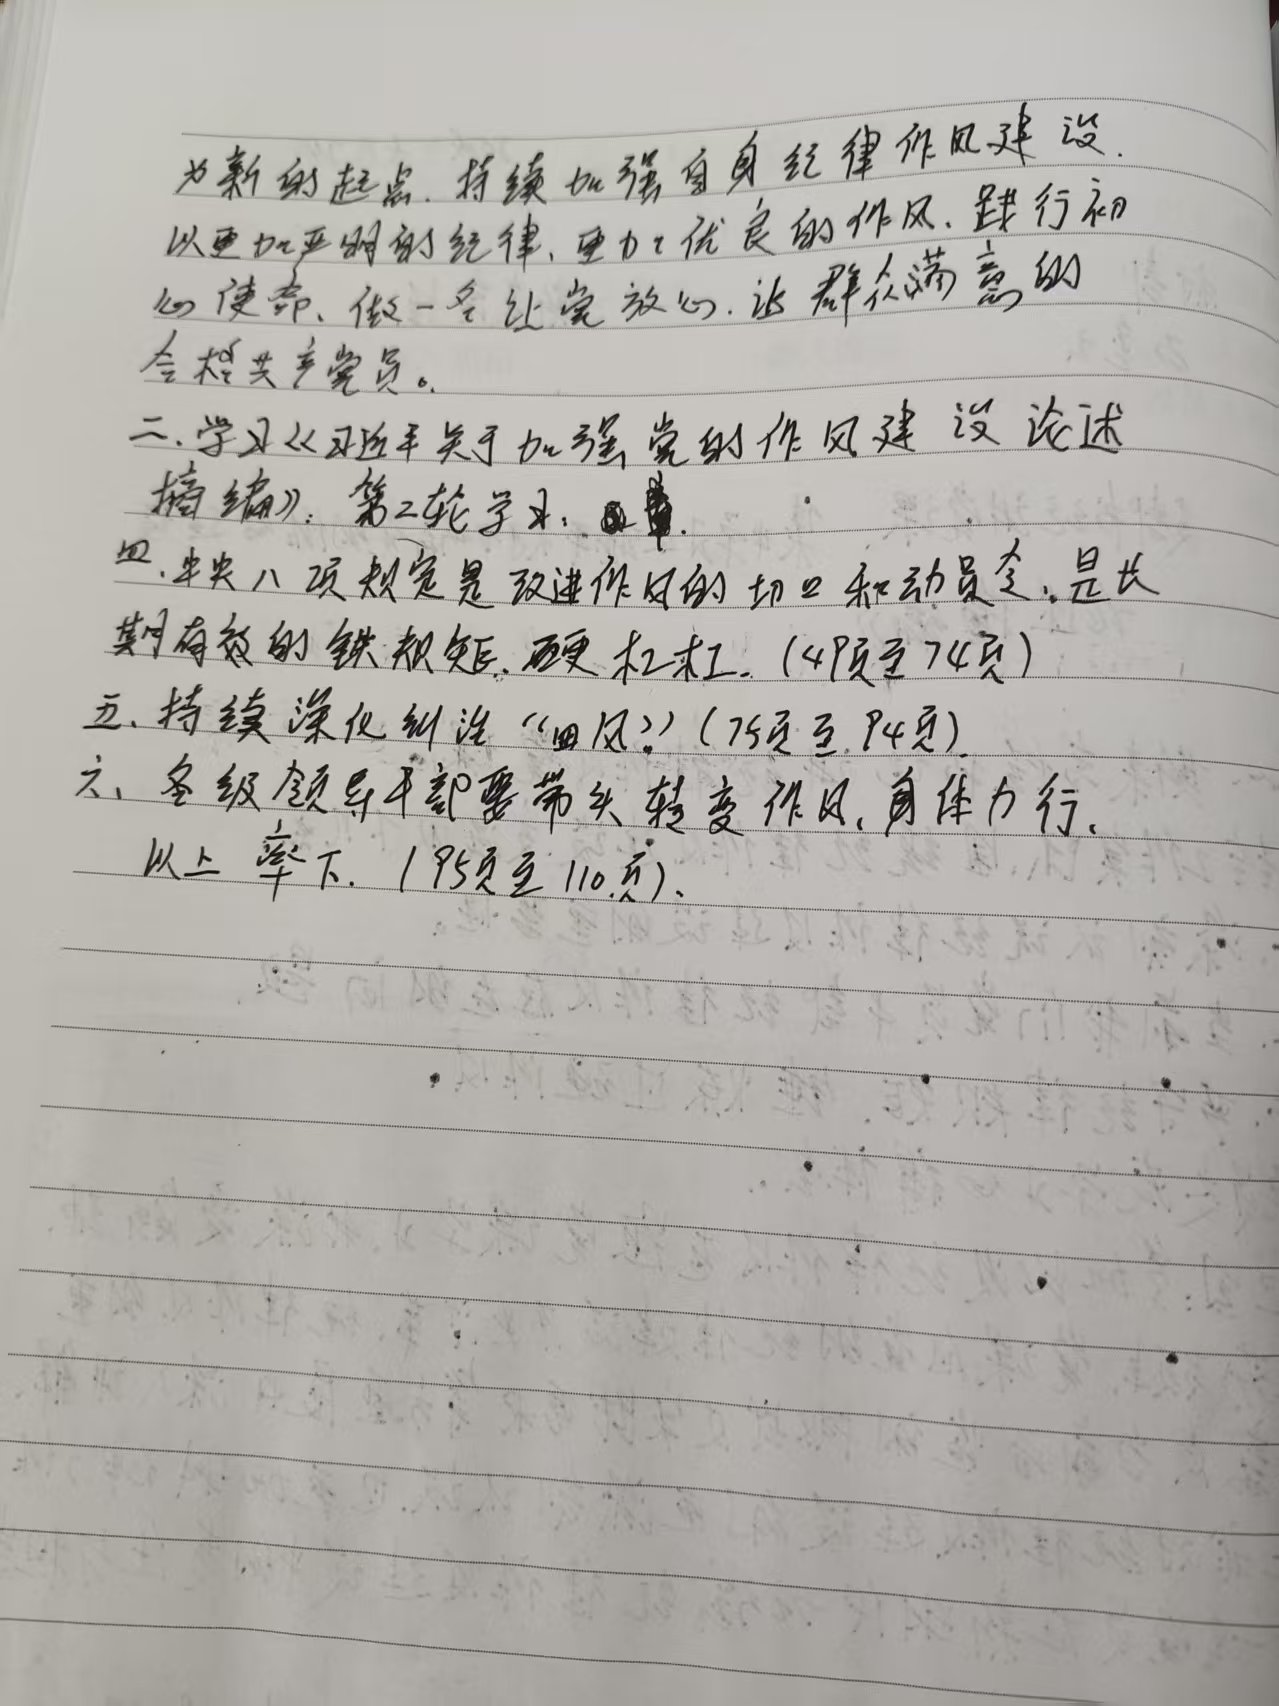 为新的起点，持续加强自身纪律作风建设.
以更加严明的纪律、更加优良的作风、践行初
心使命、做一名让党放心、让群众满意的
合格共产党员。
二、学习《习近平关于加强党的作风建设论述
摘编》：第二轮学习：
四、中央八项规定是改进作风的切口和动员令、是长
期有效的铁规矩、硬杠杠。(49页至74页)
五、持续深化纠治“四风”。(75页至94页).
六、各级领导干部要带头转变作风、身体力行、
以上率下. (95页至110页).